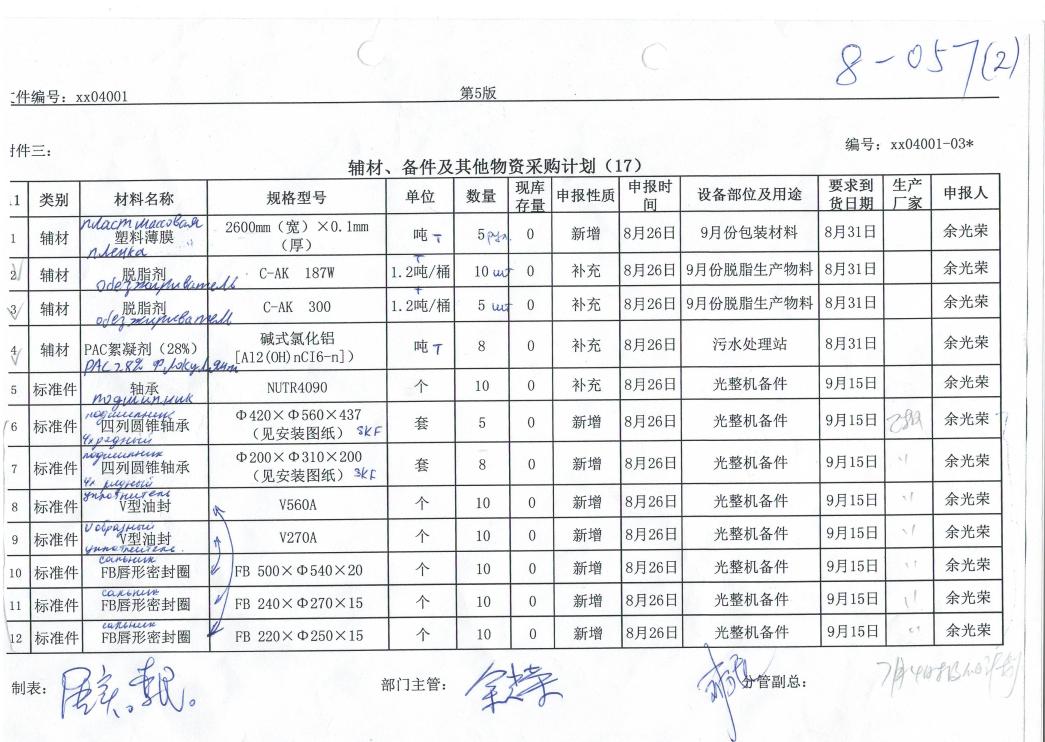 8-057(2)
件编号：xx04001 第5版
件三： 编号：xx04001-03*
辅材、备件及其他物资采购计划（17）
类别 材料名称 规格型号 单位 数量 现库存量 申报性质 申报时间 设备部位及用途 要求到货日期 生产厂家 申报人
пластмассовая
1 辅材 塑料薄膜 2600mm（宽）×0.1mm（厚） 吨 т 5 рул 0 新增 8月26日 9月份包装材料 8月31日 余光荣
пленка
2 辅材 脱脂剂 C-AK 187W 1.2吨/桶 т 10 шт 0 补充 8月26日 9月份脱脂生产物料 8月31日 余光荣
обезжириватель
3 辅材 脱脂剂 C-AK 300 1.2吨/桶 т 5 шт 0 补充 8月26日 9月份脱脂生产物料 8月31日 余光荣
обезжириватель
4 辅材 PAC絮凝剂（28%） 碱式氯化铝[Al2(OH)nCI6-n]） 吨 т 8 0 补充 8月26日 污水处理站 8月31日 余光荣
PAC 28% флокулянт
5 标准件 轴承 NUTR4090 个 10 0 补充 8月26日 光整机备件 9月15日 余光荣
подшипник
подшипник
6 标准件 四列圆锥轴承 Φ420×Φ560×437（见安装图纸） SKF 套 5 0 新增 8月26日 光整机备件 9月15日 余光荣
4х рядный
подшипник
7 标准件 四列圆锥轴承 Φ200×Φ310×200（见安装图纸） SKF 套 8 0 新增 8月26日 光整机备件 9月15日 余光荣
4х рядный
уплотнитель
8 标准件 V型油封 V560A 个 10 0 新增 8月26日 光整机备件 9月15日 余光荣
V образный
9 标准件 V型油封 V270A 个 10 0 新增 8月26日 光整机备件 9月15日 余光荣
уплотнитель.
сальник
10 标准件 FB唇形密封圈 FB 500×Φ540×20 个 10 0 新增 8月26日 光整机备件 9月15日 余光荣
сальник
11 标准件 FB唇形密封圈 FB 240×Φ270×15 个 10 0 新增 8月26日 光整机备件 9月15日 余光荣
сальник
12 标准件 FB唇形密封圈 FB 220×Φ250×15 个 10 0 新增 8月26日 光整机备件 9月15日 余光荣
制表： 部门主管： 余光荣 分管副总：